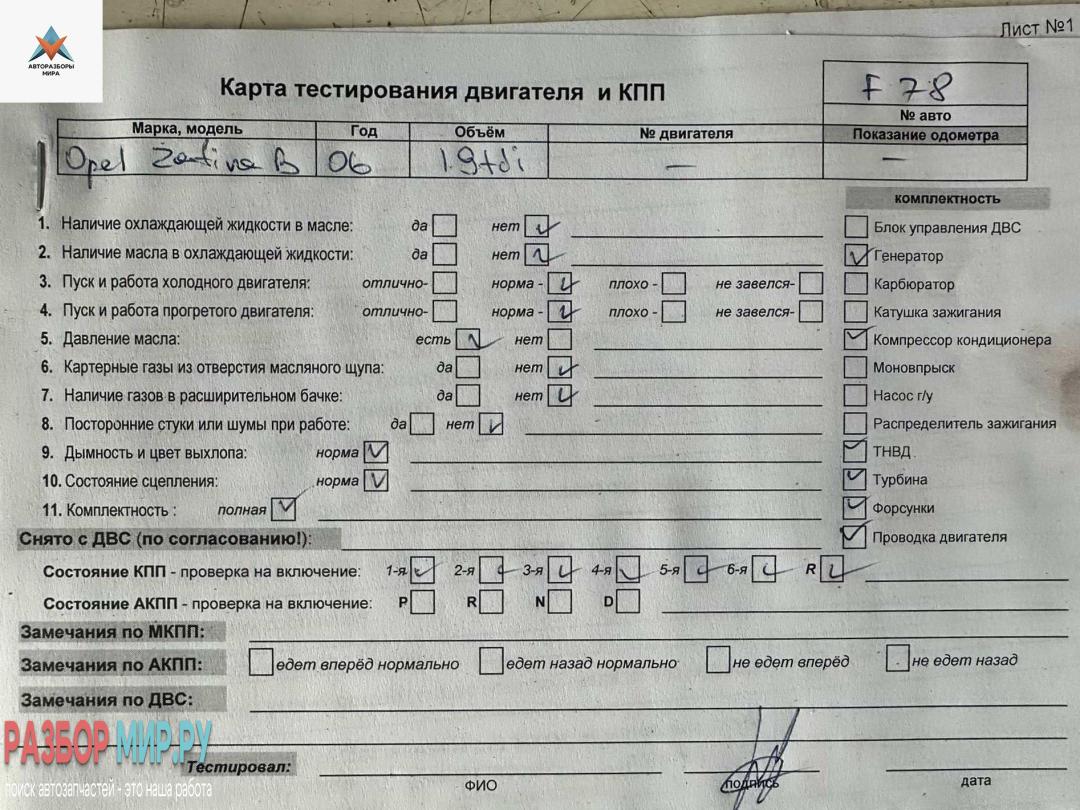 Лист №1
АВТОРАЗБОРЫ
МИРА
Карта тестирования двигателя и КПП
F 78
№ авто
Марка, модель Год Объём № двигателя Показание одометра
Opel Zafira B 06 1.9tdi — —
комплектность
1. Наличие охлаждающей жидкости в масле: да нет
Блок управления ДВС
2. Наличие масла в охлаждающей жидкости: да нет
Генератор
3. Пуск и работа холодного двигателя: отлично- норма - плохо - не завелся-
Карбюратор
4. Пуск и работа прогретого двигателя: отлично- норма - плохо - не завелся-
Катушка зажигания
5. Давление масла: есть нет
Компрессор кондиционера
6. Картерные газы из отверстия масляного щупа: да нет
Моновпрыск
7. Наличие газов в расширительном бачке: да нет
Насос г/у
8. Посторонние стуки или шумы при работе: да нет
Распределитель зажигания
9. Дымность и цвет выхлопа: норма
ТНВД
10. Состояние сцепления: норма
Турбина
11. Комплектность : полная
Форсунки
Снято с ДВС (по согласованию!):
Проводка двигателя
Состояние КПП - проверка на включение: 1-я 2-я 3-я 4-я 5-я 6-я R
Состояние АКПП - проверка на включение: P R N D
Замечания по МКПП:
Замечания по АКПП: едет вперёд нормально едет назад нормально не едет вперёд не едет назад
Замечания по ДВС:
РАЗБОР МИР.РУ
поиск автозапчастей - это наша работа
Тестировал:
ФИО подпись дата